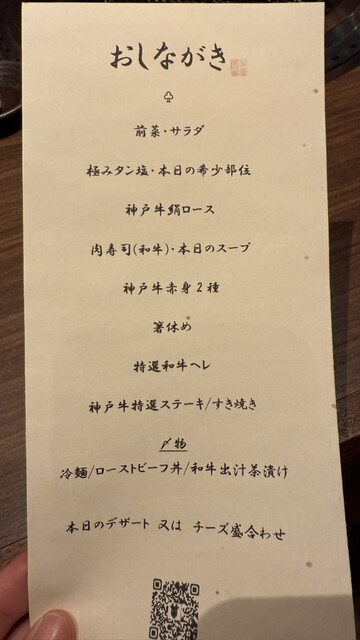 おしながき
前菜・サラダ
極みタン塩・本日の希少部位
神戸牛絹ロース
肉寿司(和牛)・本日のスープ
神戸牛赤身2種
箸休め
特選和牛ヘレ
神戸牛特選ステーキ/すき焼き
〆物
冷麺/ローストビーフ丼/和牛出汁茶漬け
本日のデザート 又は チーズ盛合わせ